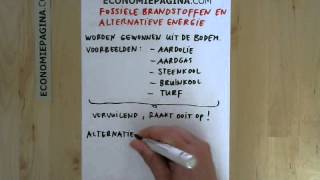 ECONOMIEPAGINA.COM
FOSSIELE BRANDSTOFFEN EN
ALTERNATIEVE ENERGIE
WORDEN GEWONNEN UIT DE BODEM.
VOORBEELDEN: - AARDOLIE
- AARDGAS
- STEENKOOL
- BRUINKOOL
- TURF
VERVUILEND, RAAKT OOIT OP!
ALTERNATIE
ECONOMIEPAGINA.COM
ECONOMIEPAGINA.COM